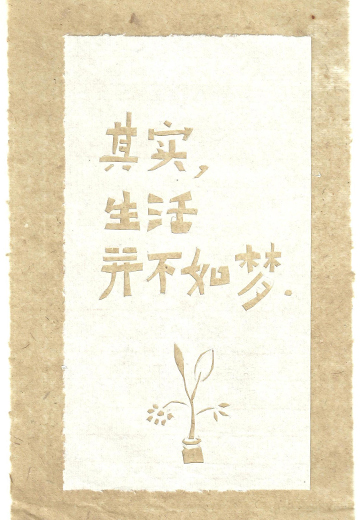 其实,
生活
并不如梦.